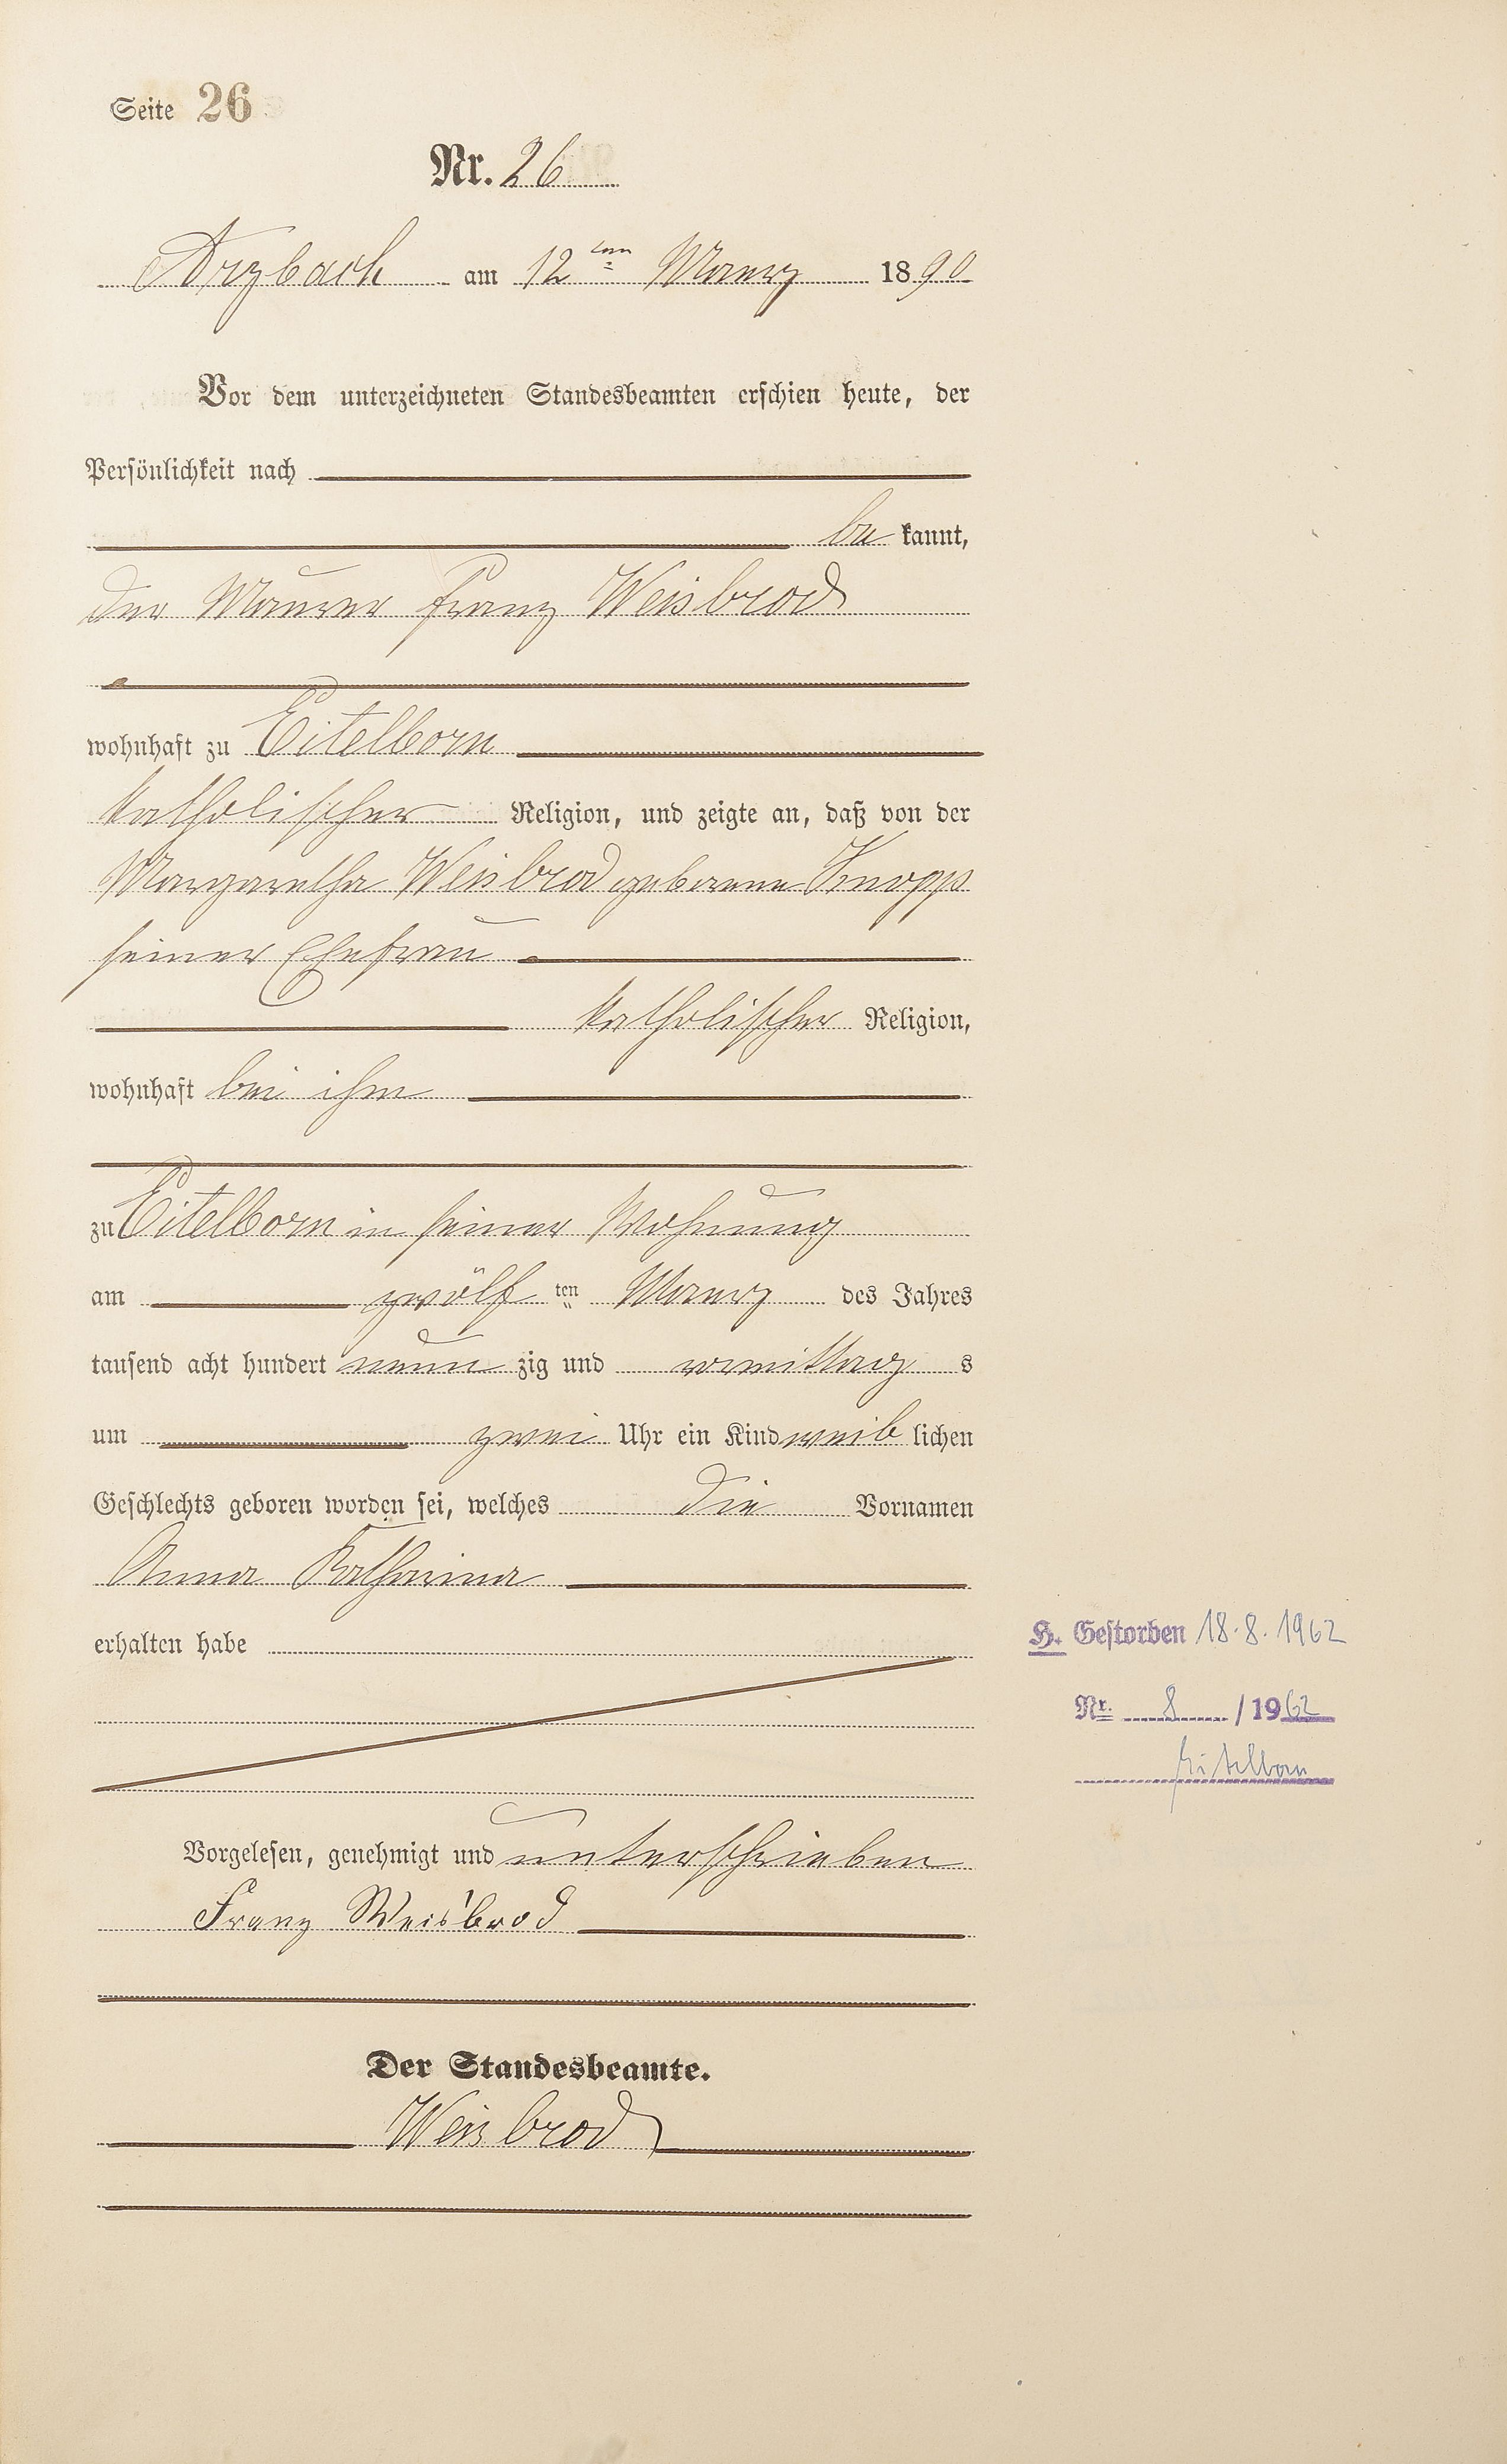 Seite 26
Nr. 26
Arzbach am 12ten Maerz 1890
Vor dem unterzeichneten Standesbeamten erschien heute, der
Persönlichkeit nach
be kannt,
der Maurer Franz Weisbrod
wohnhaft zu Eitelborn
katholischer Religion, und zeigte an, daß von der
Margaretha Weisbrod geborene Knopp
seiner Ehefrau
katholischer Religion,
wohnhaft bei ihm
zu Eitelborn in seiner Wohnung
am zwölf ten Maerz des Jahres
tausend acht hundert neun zig und vormittag s
um zwei Uhr ein Kind weib lichen
Geschlechts geboren worden sei, welches die Vornamen
Anna Katharina
erhalten habe
H. Gestorben 18.8.1962
Nr. 8 / 1962
Eitelborn
Vorgelesen, genehmigt und unterschrieben
Franz Weisbrod
Der Standesbeamte.
Weisbrod